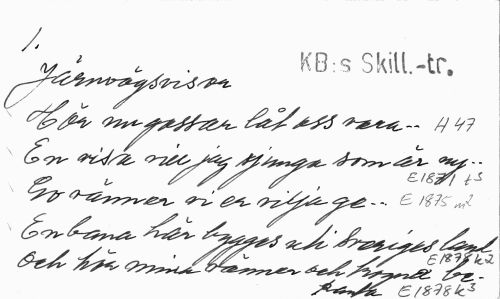 1.
KB:s Skill.-tr.
Järnvägsvisor
Hör nu gossar låt oss vara.. H 47
En visa vill jag sjunga som är ny..
E 1871 t3
Go vänner vi er vilja ge.. E 1875 m2
En bana här bygges uti Sveriges land
E 1878 k2
Och hör mina vänner och be-
E 1878 k3